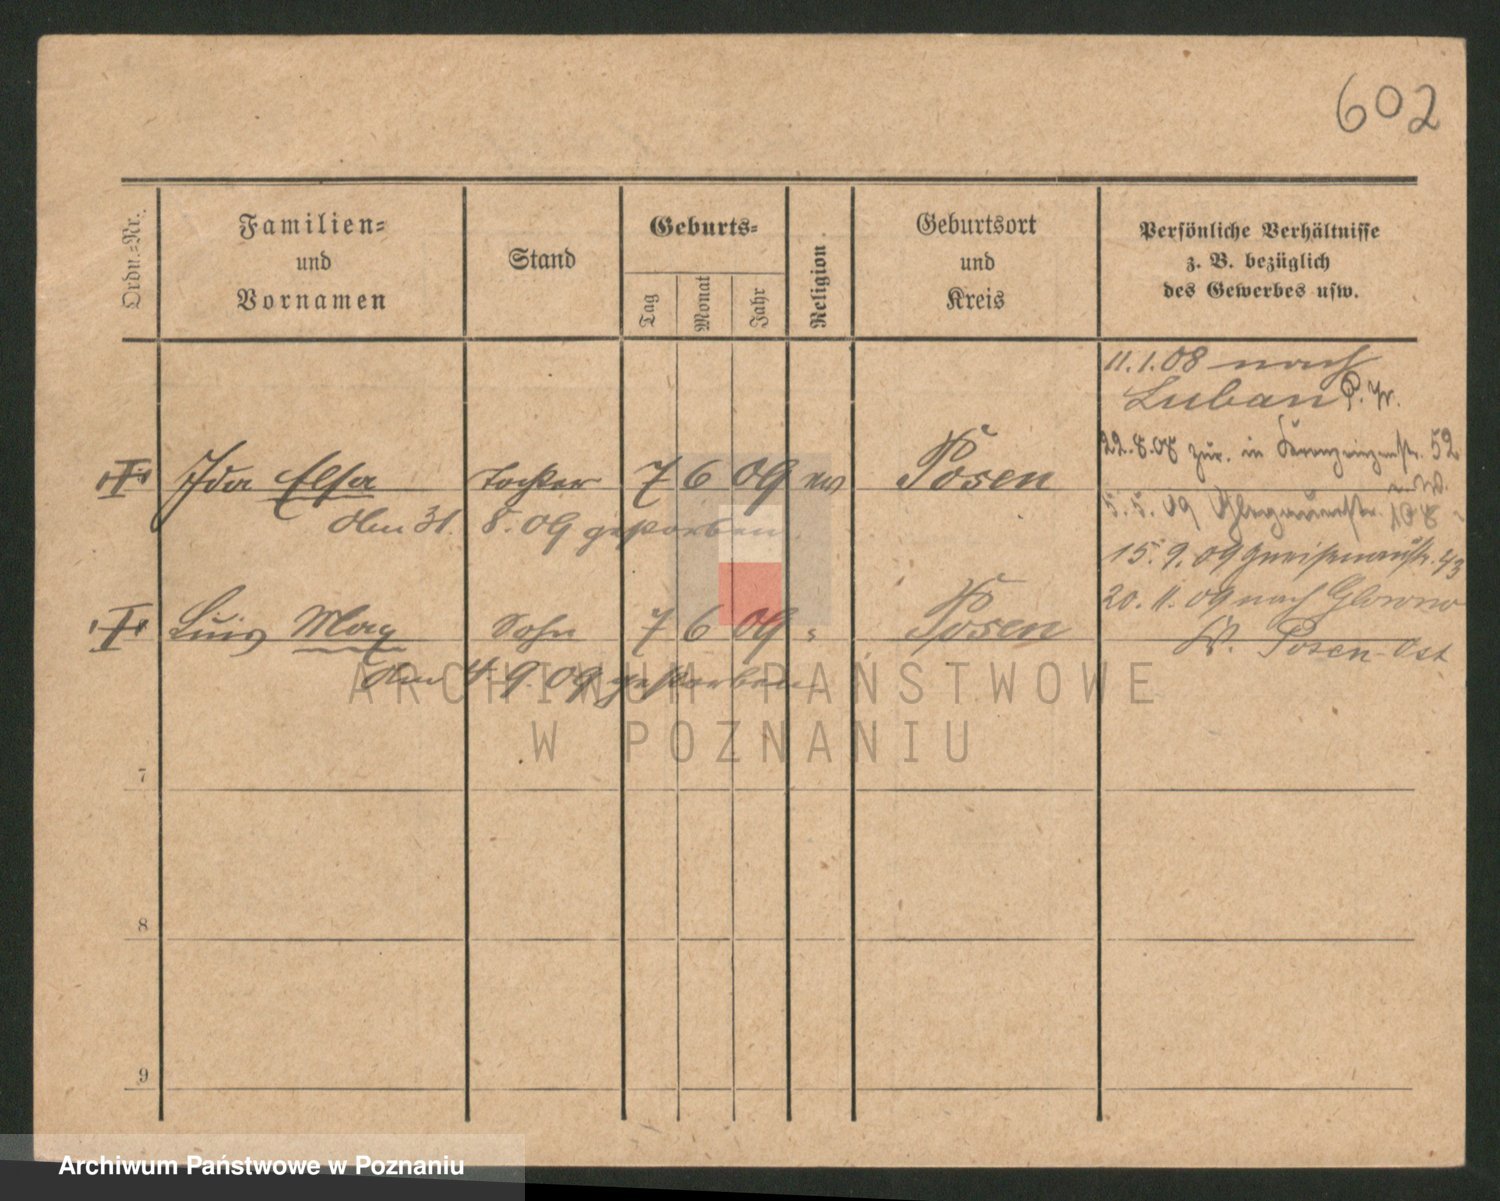 602
Ordn.-Nr.
Familien-
und
Vornamen
Stand
Geburts-
Tag
Monat
Jahr
Religion
Geburtsort
und
Kreis
Persönliche Verhältnisse
z. B. bezüglich
des Gewerbes usw.
11.1.08 nach
Luban P. W.
22.8.08 zur. in 52
5.5.09 108
15.9.09 Gneisenaustr. 43
20.11.09 nach Glowno
W. Posen-Ost
Ida Elsa Tochter 7 6 09 ev Posen
Am 31. 8. 09 gestorben
Max Sohn 7 6 09 " Posen
Am 4. 9. 09 gestorben
7
8
9
ARCHIWUM PAŃSTWOWE
W POZNANIU
Archiwum Państwowe w Poznaniu